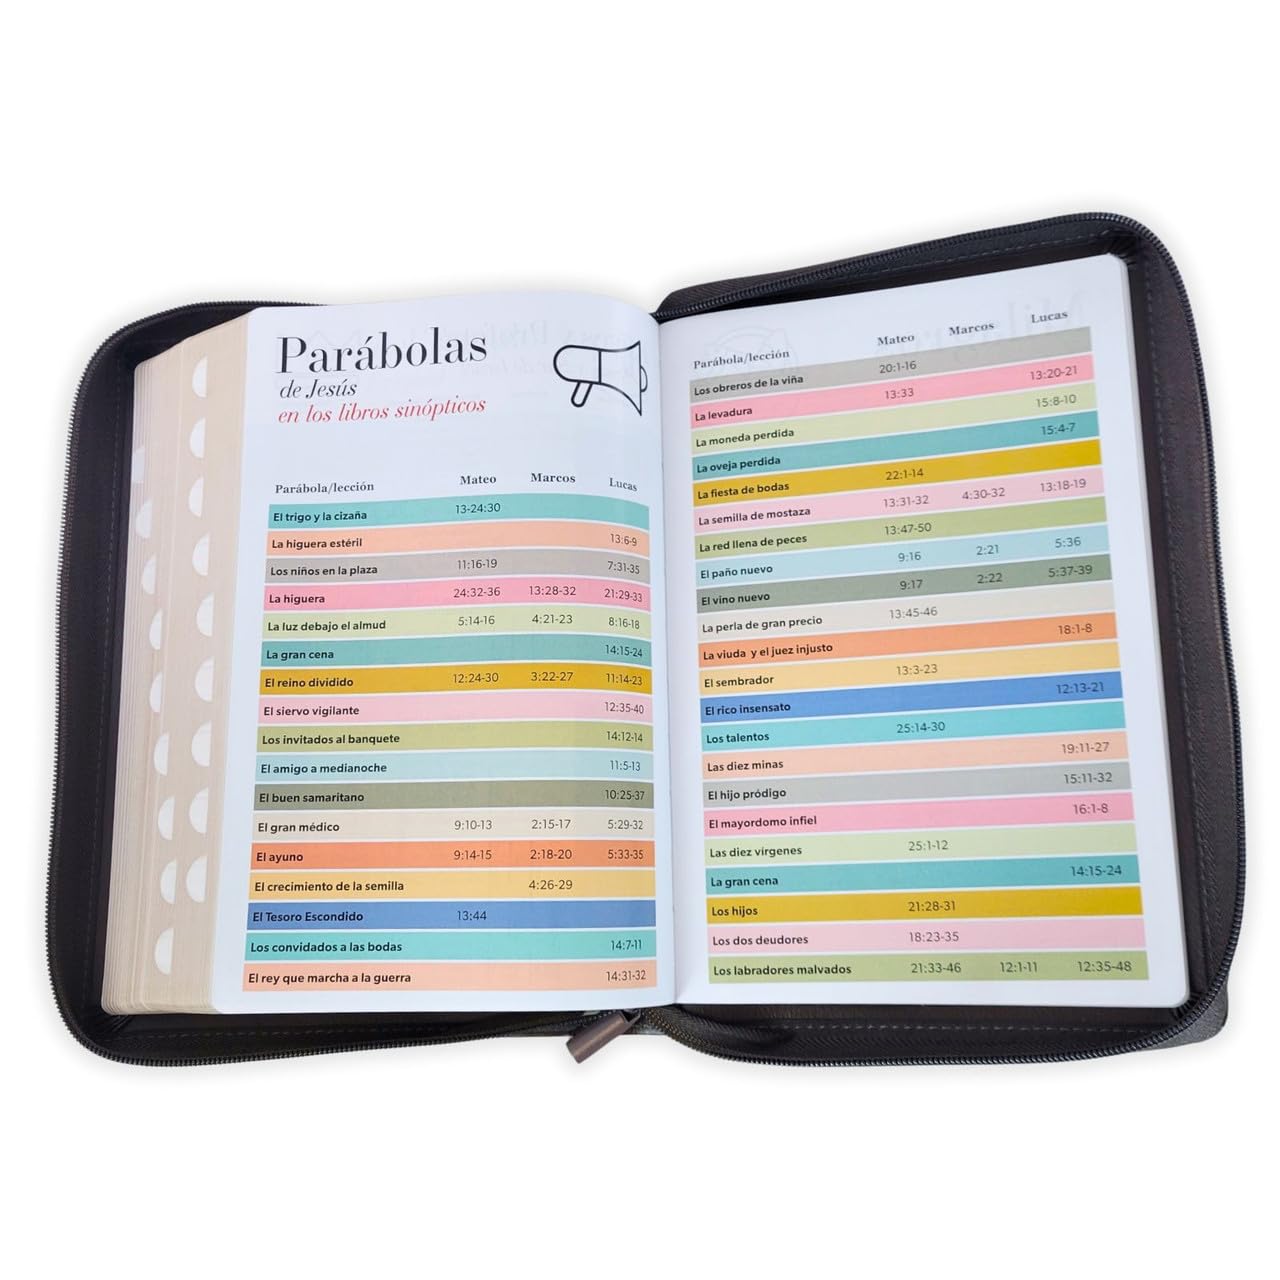 Parábolas
de Jesús
en los libros sinópticos
Parábola/lección Mateo Marcos Lucas
El trigo y la cizaña 13-24:30
La higuera estéril 13:6-9
Los niños en la plaza 11:16-19 7:31-35
La higuera 24:32-36 13:28-32 21:29-33
La luz debajo el almud 5:14-16 4:21-23 8:16-18
La gran cena 14:15-24
El reino dividido 12:24-30 3:22-27 11:14-23
El siervo vigilante 12:35-40
Los invitados al banquete 14:12-14
El amigo a medianoche 11:5-13
El buen samaritano 10:25-37
El gran médico 9:10-13 2:15-17 5:29-32
El ayuno 9:14-15 2:18-20 5:33-35
El crecimiento de la semilla 4:26-29
El Tesoro Escondido 13:44
Los convidados a las bodas 14:7-11
El rey que marcha a la guerra 14:31-32
Parábola/lección Mateo Marcos Lucas
Los obreros de la viña 20:1-16
La levadura 13:33 13:20-21
La moneda perdida 15:8-10
La oveja perdida 15:4-7
La fiesta de bodas 22:1-14
La semilla de mostaza 13:31-32 4:30-32 13:18-19
La red llena de peces 13:47-50
El paño nuevo 9:16 2:21 5:36
El vino nuevo 9:17 2:22 5:37-39
La perla de gran precio 13:45-46
La viuda y el juez injusto 18:1-8
El sembrador 13:3-23
El rico insensato 12:13-21
Los talentos 25:14-30
Las diez minas 19:11-27
El hijo pródigo 15:11-32
El mayordomo infiel 16:1-8
Las diez vírgenes 25:1-12
La gran cena 14:15-24
Los hijos 21:28-31
Los dos deudores 18:23-35
Los labradores malvados 21:33-46 12:1-11 12:35-48